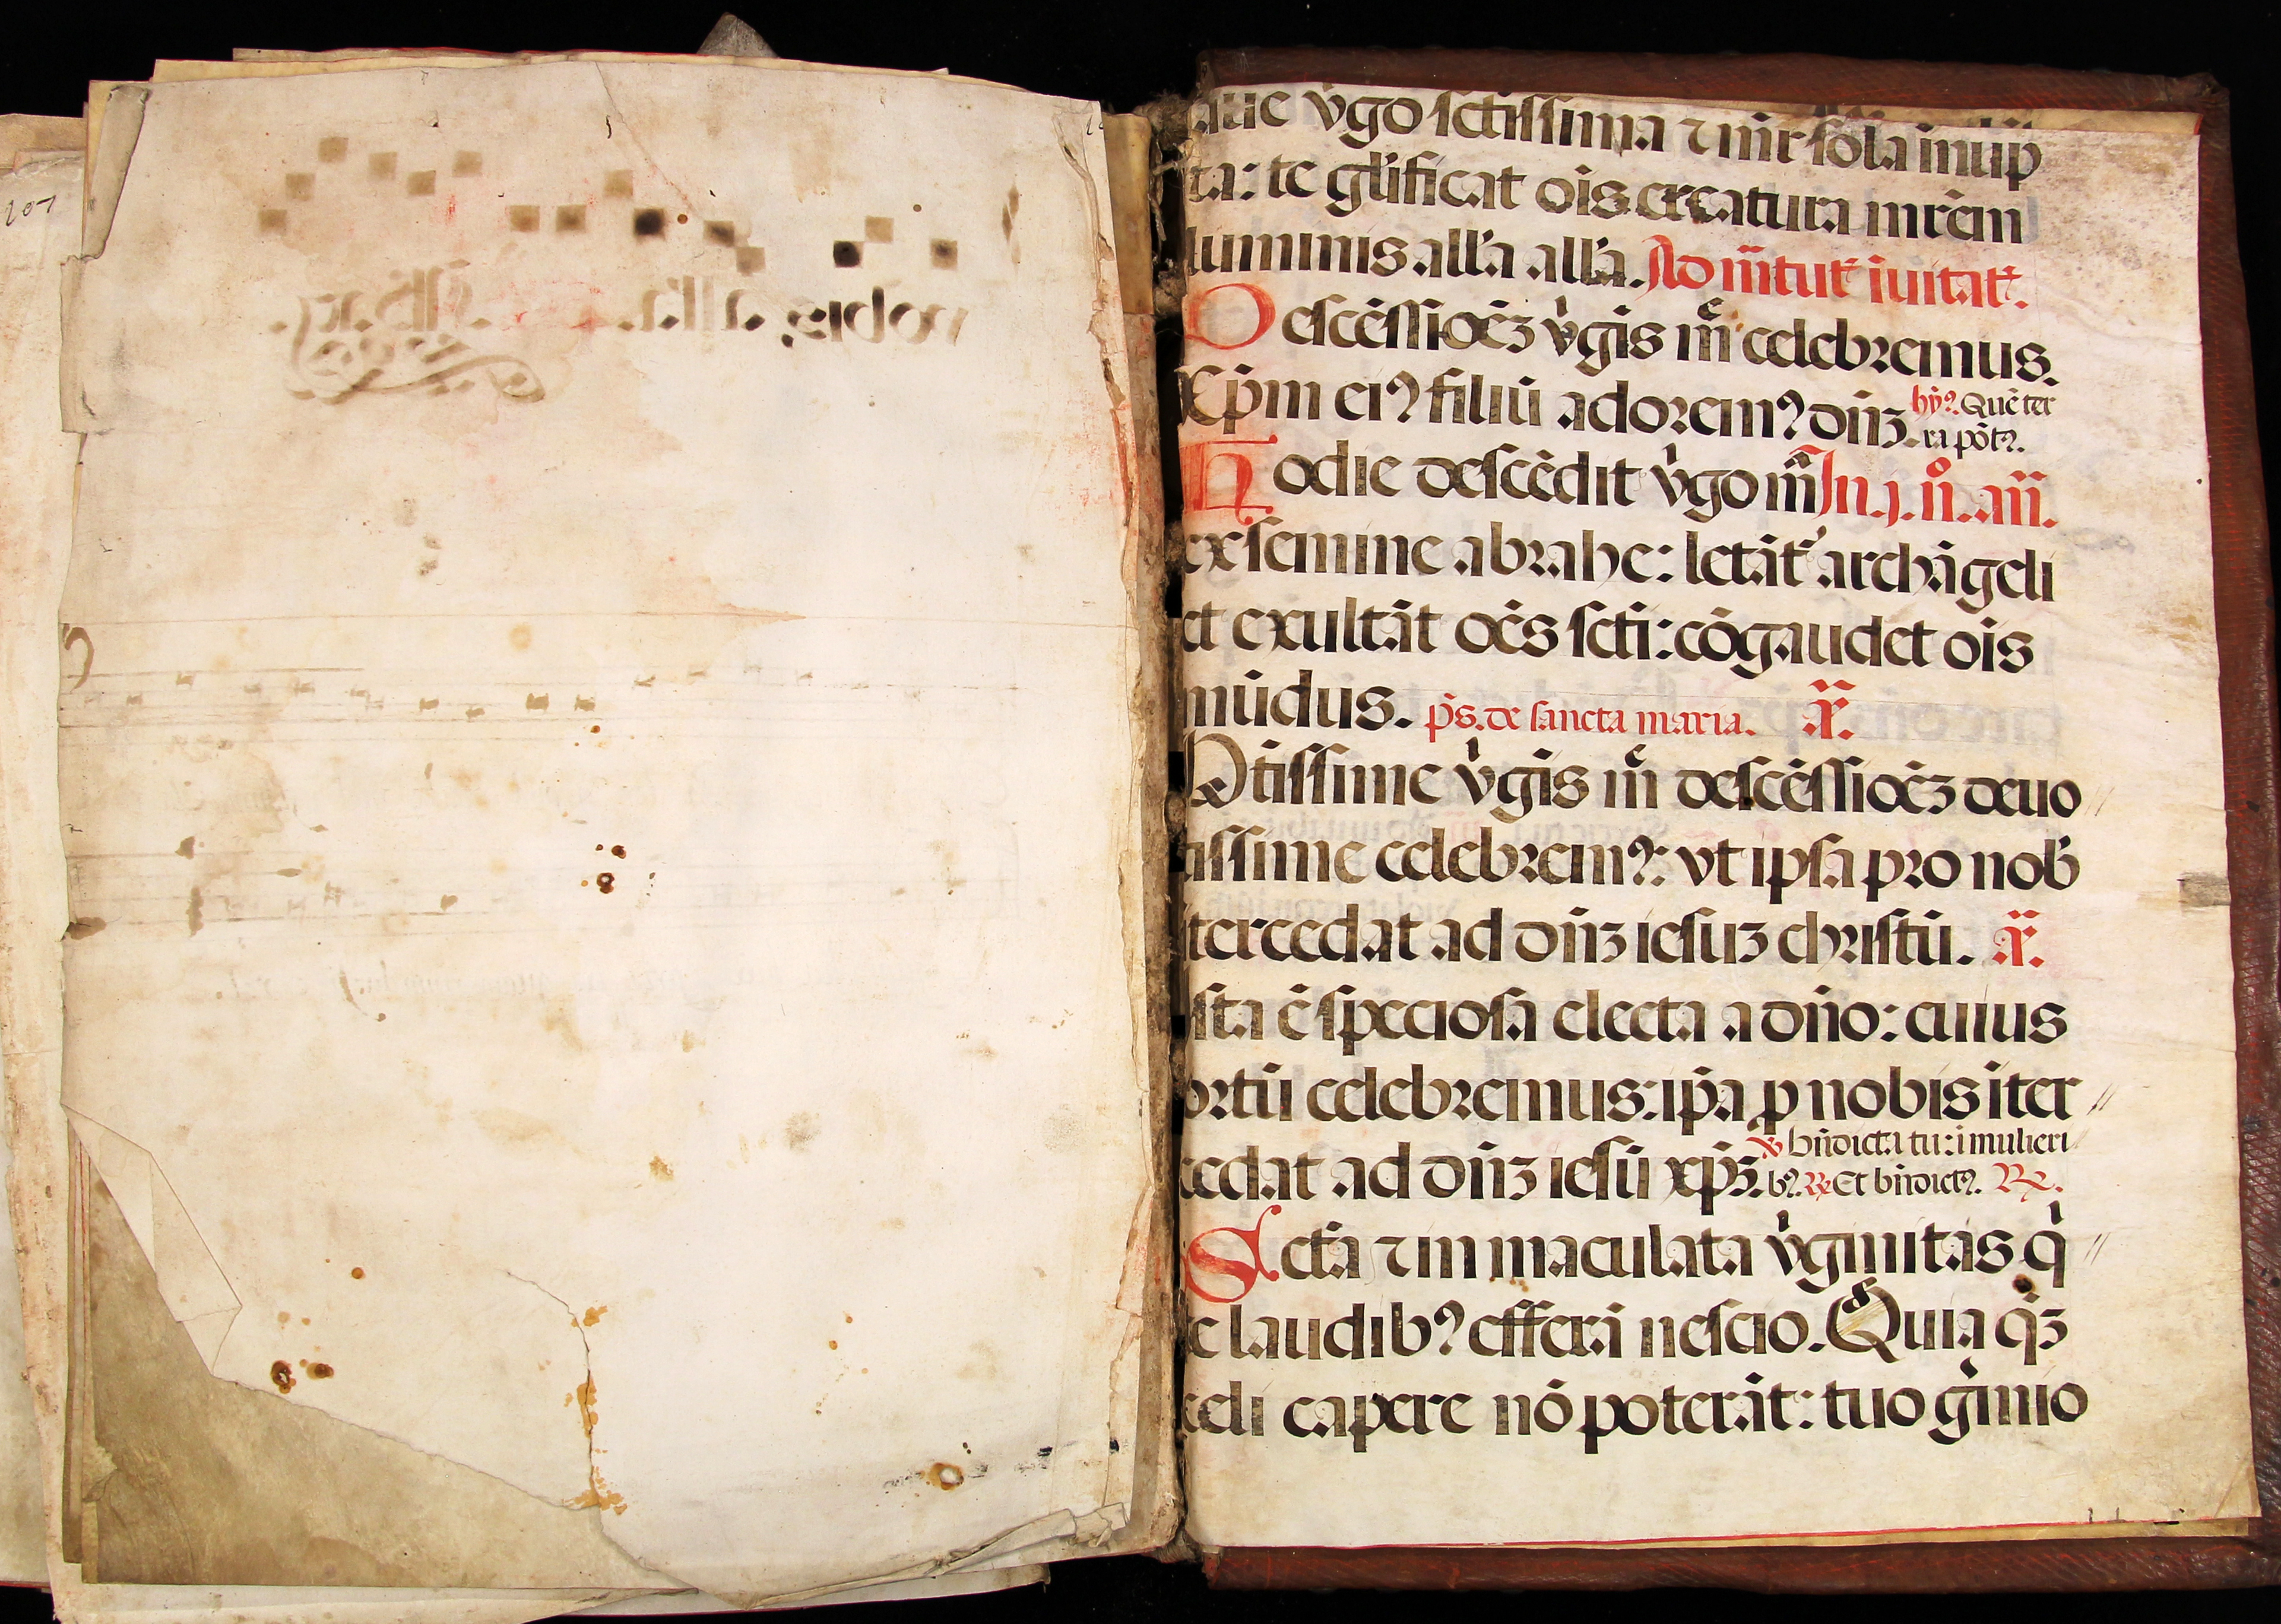 107
nobis. all'a. all'a.
aue v̾go sctissima ⁊ mr̃ sola inup
ta: te gl'ificat oīs creatura mr̃em
luminis all'a all'a. Ad m̃tut᷑ īuitat᷑.
Descēssiōeꝫ v̾gīs m̃e celebremus.
Xp̄m eiꝰ filiū adoremꝰ dn̄ꝫ. hȳꝰ. Quē ter
ra pōtꝰ.
Hodie descēdit v̾go m̃a In .j. n̊. añ.
ex semine abrahe: letāt᷑ archāgeli
et exultāt oēs scti: cōgaudet oīs
mūdus. p̄s. de sancta maria. añ.
Btīssime v̾gīs m̃e descēssiōeꝫ deuo //
tissime celebremꝰ: vt ipsa pro nob̾
ītercedat ad dn̄ꝫ iesuꝫ christū. añ.
ista ē speciosa electa a dn̄o: cuius
ortū celebremus: ip̄a p nobis īter //
cedat ad dn̄ꝫ iesū xp̄ꝫ. ℣ bn̄dicta tu: ī mulieri //
bꝰ. ℟ Et bn̄dictꝰ. ℟.
Sctā ⁊ in maculata v̾ginitas q̾ //
e laudibꝰ efferā nescio. Quia q̄ꝫ
celi capere nō poterāt: tuo g̾mio